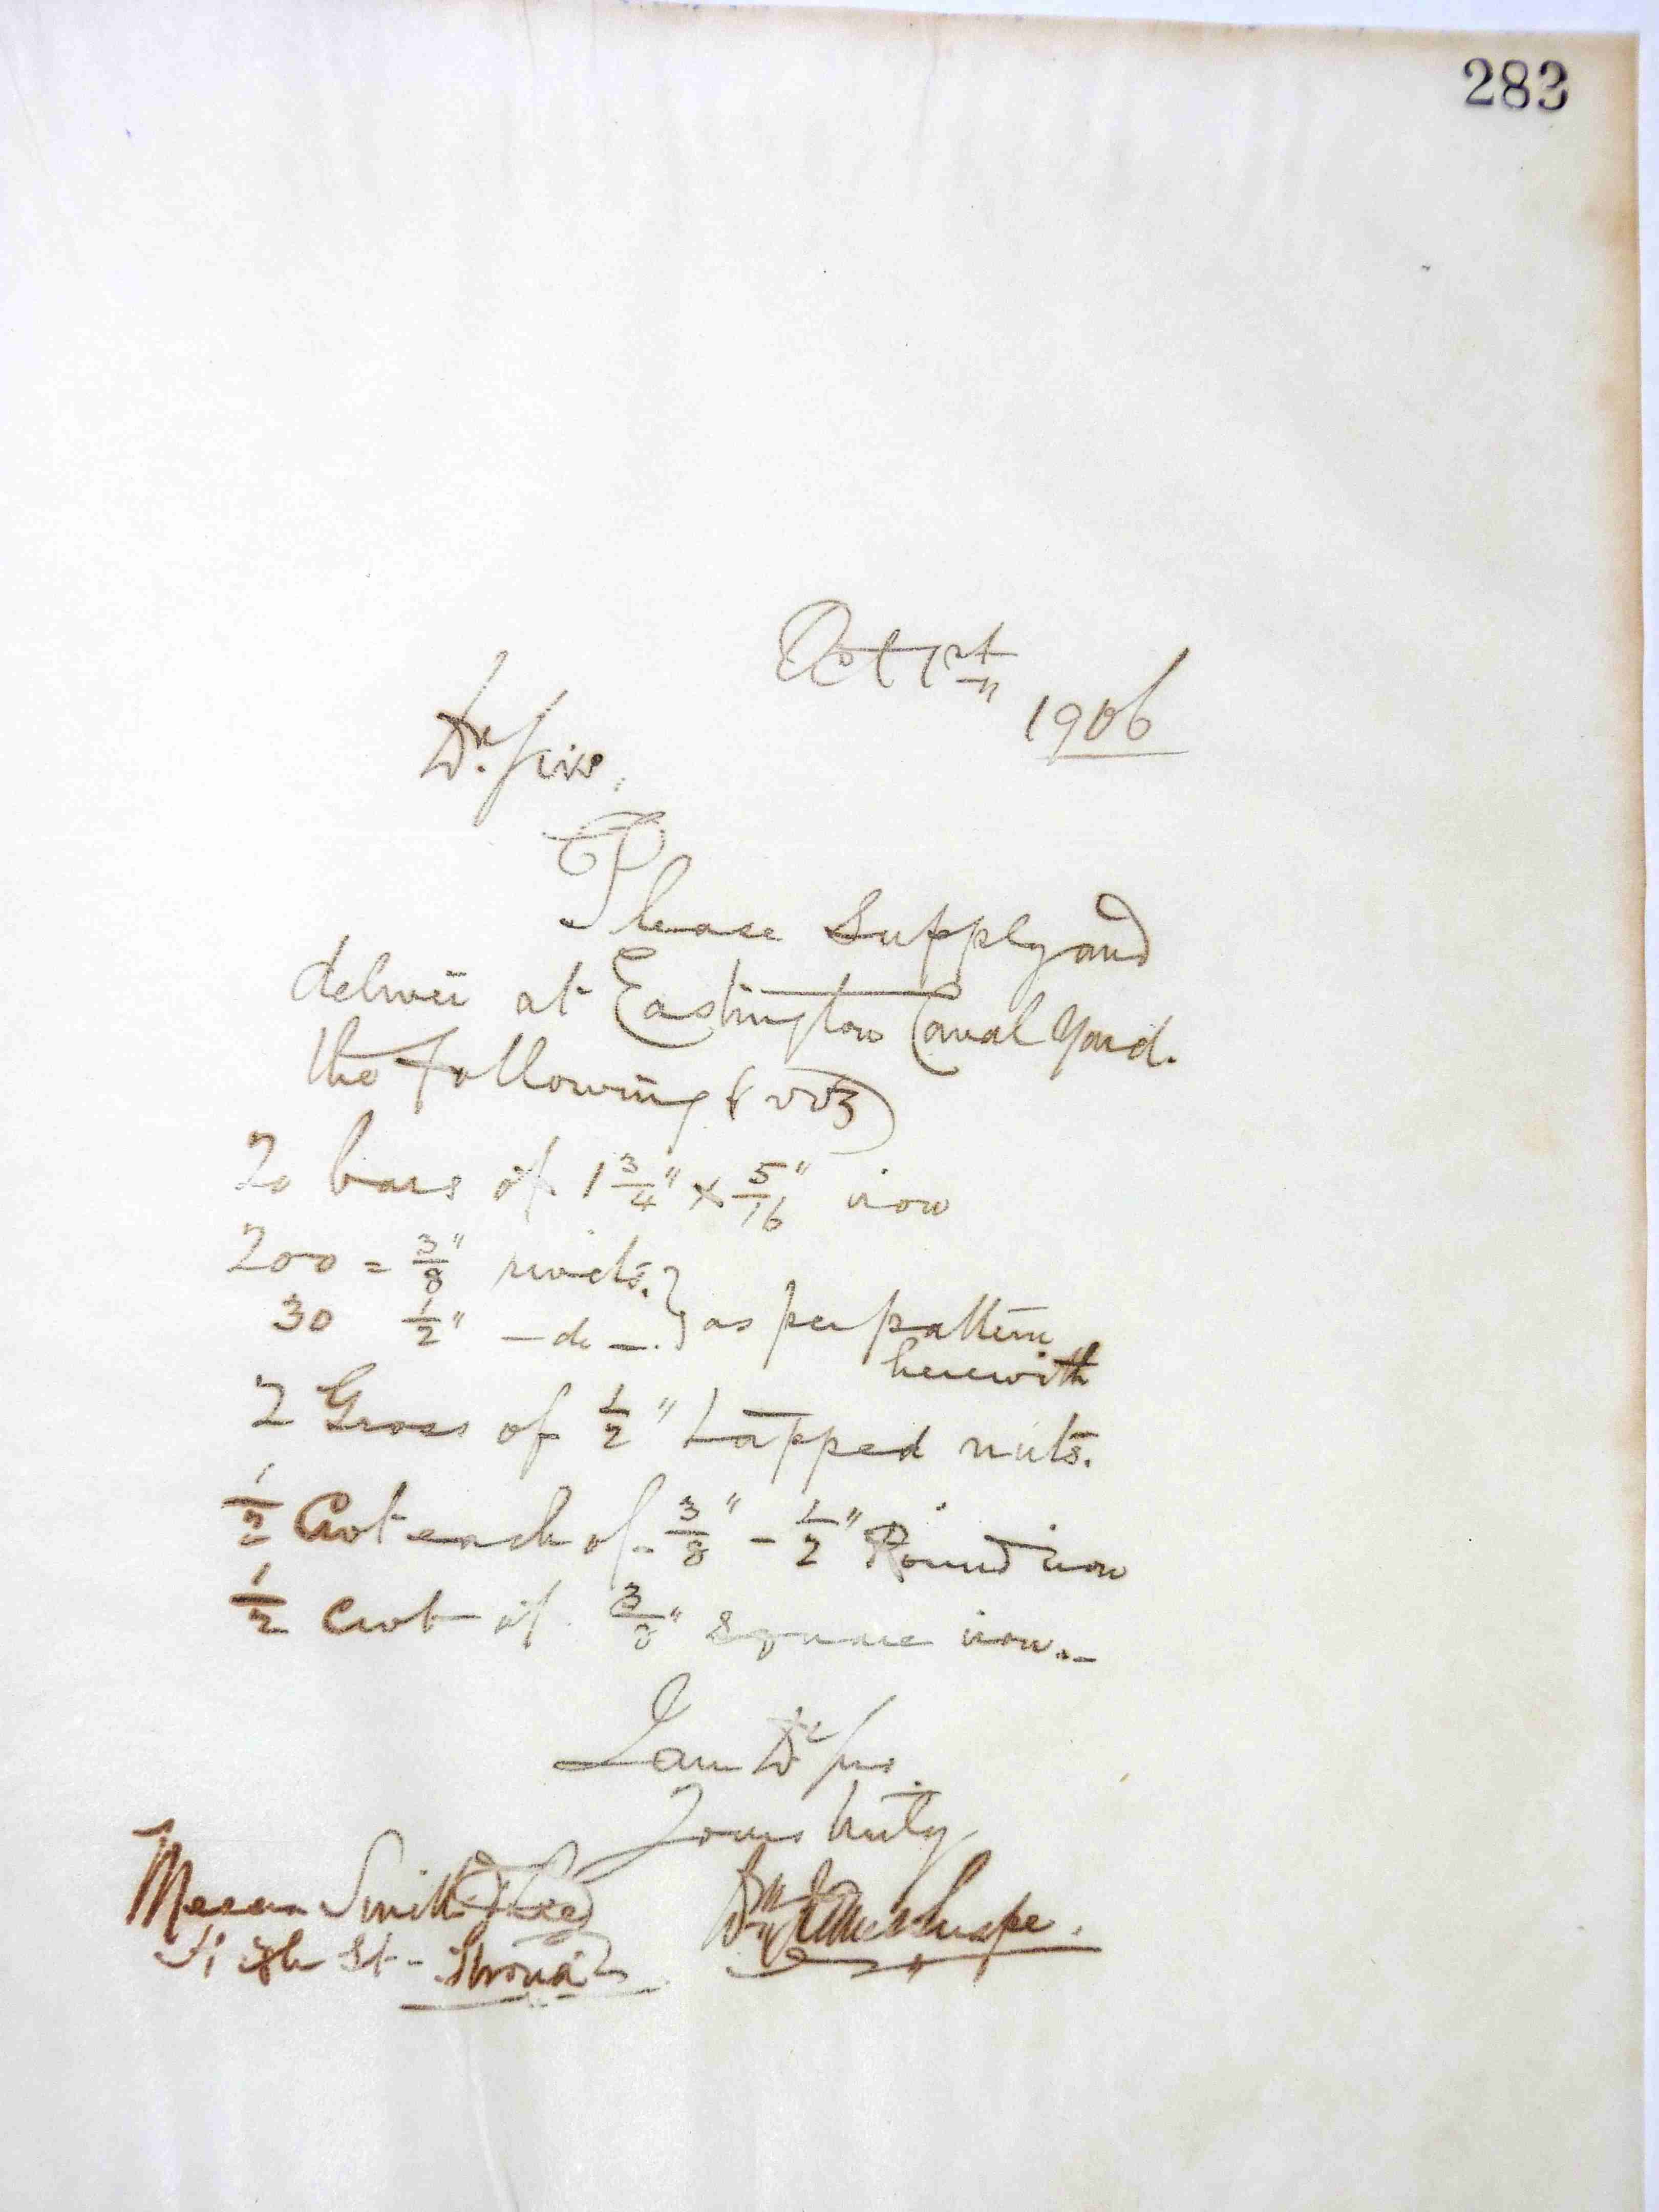 283
Oct 1st
1906
Dr Sirs,
Please Supply and
deliver at Eastington Canal Yard.
the following goods
20 bars of 1 3/4" x 5/16" iron
200 = 3/8" rivets. } as per pattern
30 1/2" — do —. } herewith
2 Gross of 1/2" tapped nuts.
1/2 Cwt each of - 3/8" - 1/2" Round iron
1/2 Cwt of 3/8" square iron. -
I am Dr Sirs
Yours truly
Messrs Smith & Lee
High St - Stroud